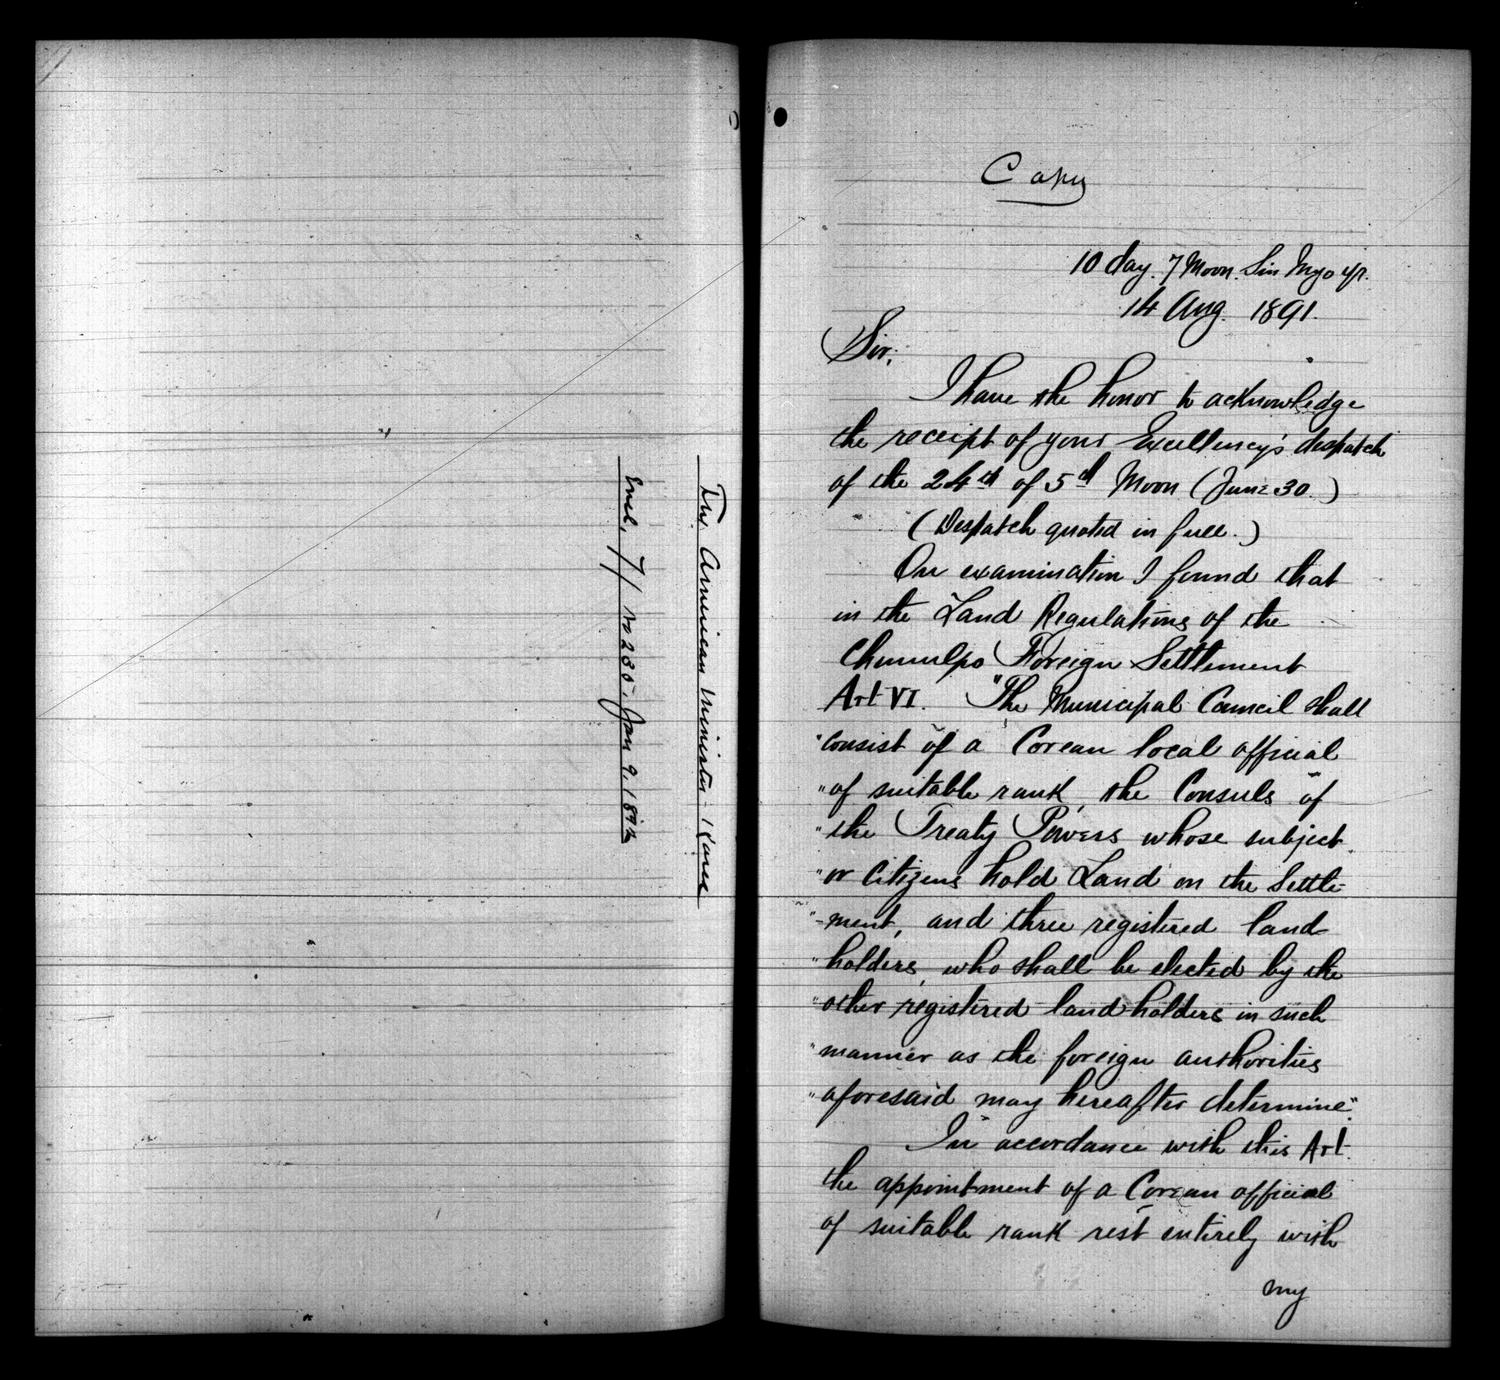 The American Minister - Korea
Encl. 7/ No 230. Jan 9. 1892
Copy
10 day. 7 Moon. Sin Myo yr.
14 Aug. 1891.
Sir;
I have the honor to acknowledge
the receipt of your Excellency's despatch
of the 24th of 5th Moon (June 30.)
(Despatch quoted in full.)
On examination I found that
in the Land Regulations of the
Chemulpo Foreign Settlement
Art VI. "The Municipal Council shall
"consist of a Corean local official
"of suitable rank, the Consuls of
"the Treaty Powers whose subject
"or Citizens hold Land on the Settle-
"-ment, and three registered land
"holders, who shall be elected by the
"other registered land holders in such
"manner as the foreign authorities
"aforesaid may hereafter determine".
In accordance with this Art.
the appointment of a Corean official
of suitable rank rest entirely with
my